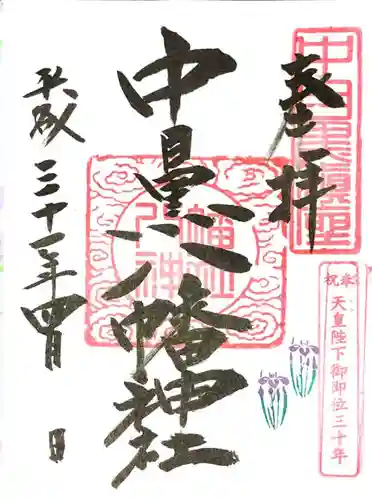 奉拝
中目黒鎮座
中目黒八幡神社
八幡神社
平成三十一年四月 日
奉祝
天皇陛下御即位三十年